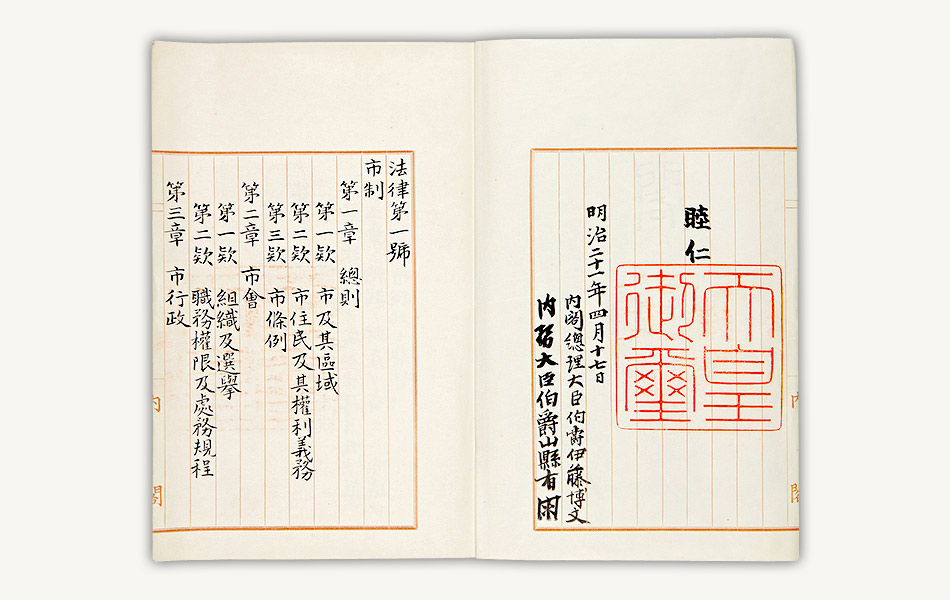 睦仁
天皇
御璽
明治二十一年四月十七日
内閣總理大臣伯爵伊藤博文
内務大臣伯爵山縣有朋
法律第一號
市制
第一章 總則
第一欵 市及其區域
第二欵 市住民及其權利義務
第三欵 市條例
第二章 市會
第一欵 組織及選擧
第二欵 職務權限及處務規程
第三章 市行政
内閣